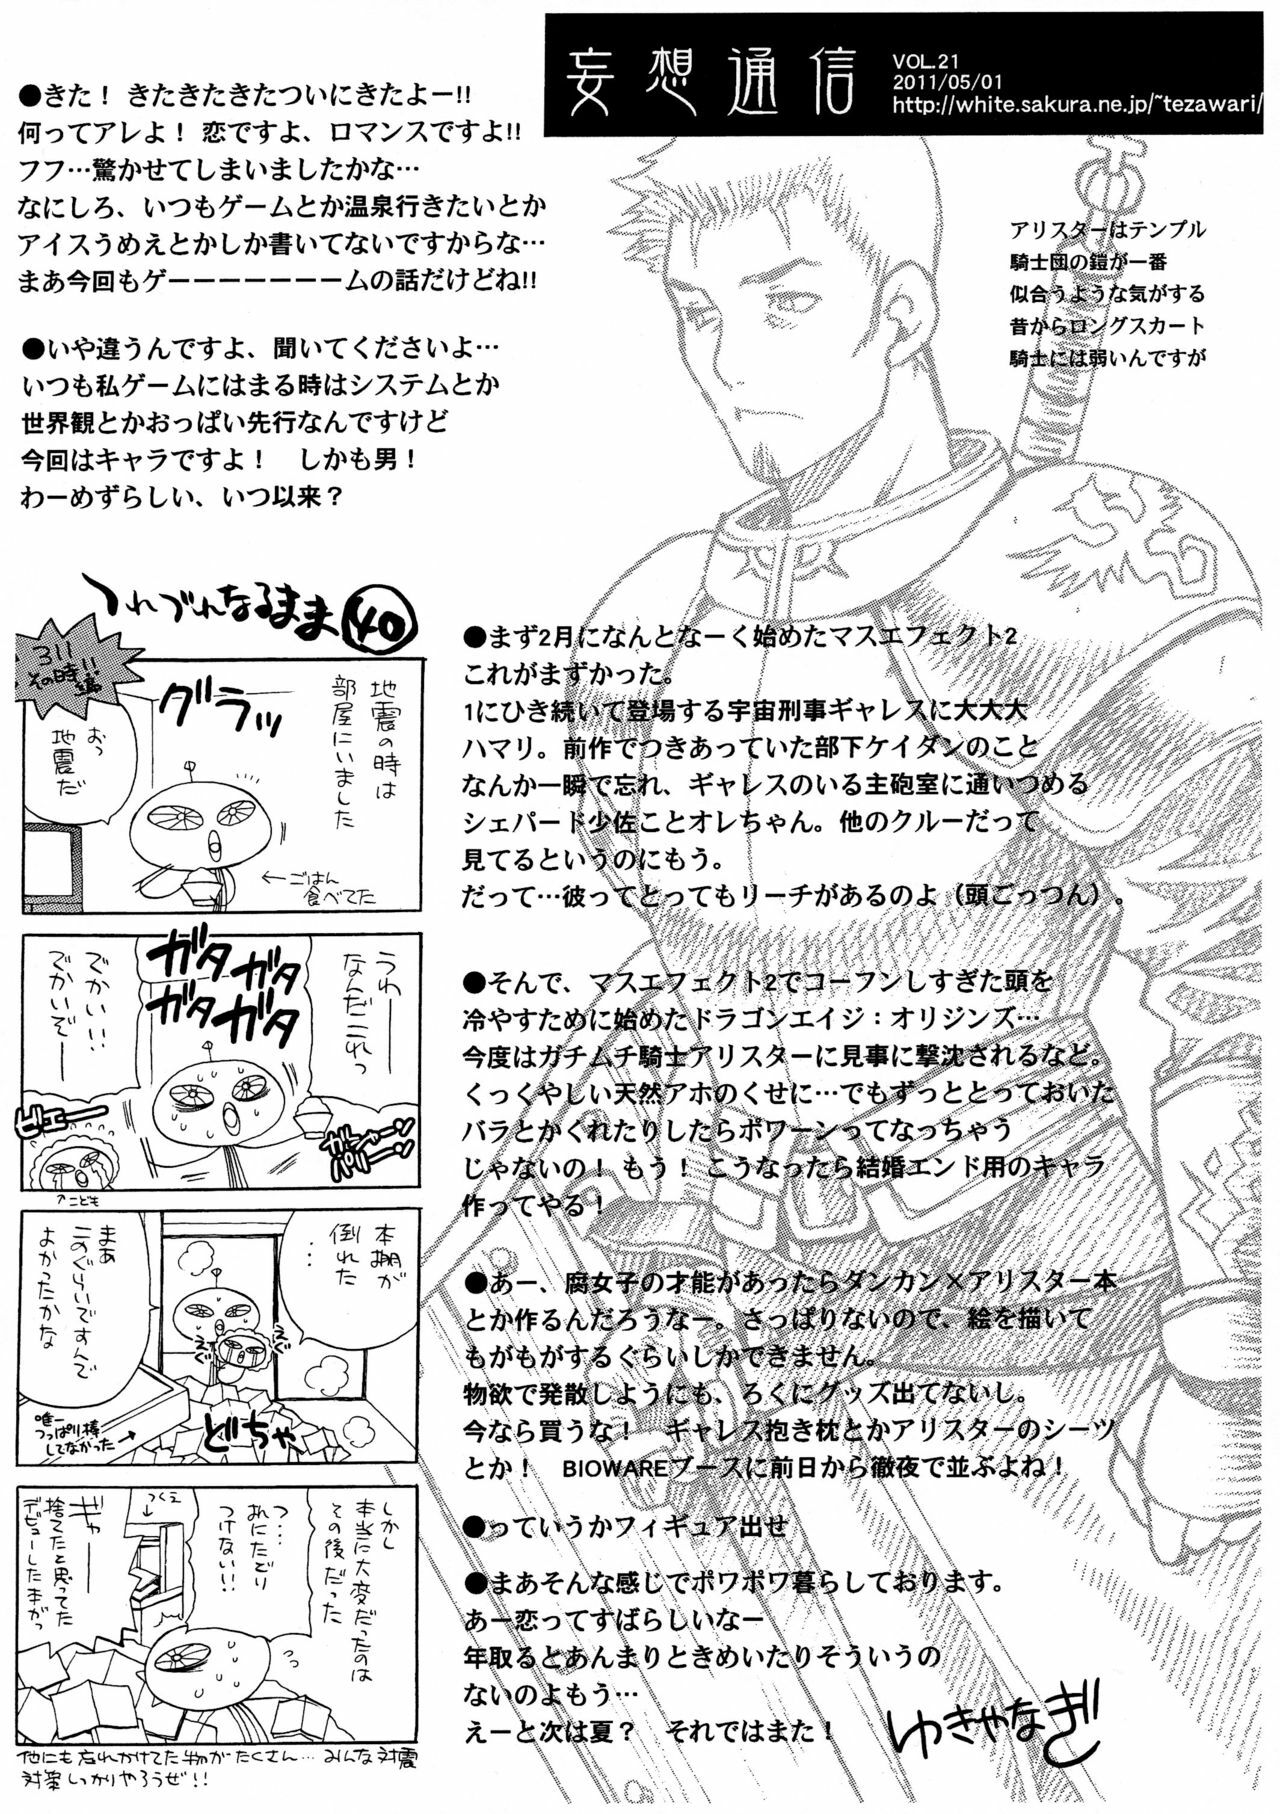 妄想通信
VOL.21
2011/05/01
http://white.sakura.ne.jp/~tezawari/
●きた！ きたきたきたついにきたよー!!
何ってアレよ！ 恋ですよ、ロマンスですよ!!
フフ…驚かせてしまいましたかな…
なにしろ、いつもゲームとか温泉行きたいとか
アイスうめえとかしか書いてないですからな…
まあ今回もゲーーーーーーームの話だけどね!!
●いや違うんですよ、聞いてくださいよ…
いつも私ゲームにはまる時はシステムとか
世界観とかおっぱい先行なんですけど
今回はキャラですよ！　しかも男！
わーめずらしい、いつ以来？
アリスターはテンプル
騎士団の鎧が一番
似合うような気がする
昔からロングスカート
騎士には弱いんですが
●まず2月になんとなーく始めたマスエフェクト2
これがまずかった。
1にひき続いて登場する宇宙刑事ギャレスに大大大
ハマリ。前作でつきあっていた部下ケイダンのこと
なんか一瞬で忘れ、ギャレスのいる主砲室に通いつめる
シェパード少佐ことオレちゃん。他のクルーだって
見てるというのにもう。
だって…彼ってとってもリーチがあるのよ（頭ごっつん）。
●そんで、マスエフェクト2でコーフンしすぎた頭を
冷やすために始めたドラゴンエイジ：オリジンズ…
今度はガチムチ騎士アリスターに見事に撃沈されるなど。
くっくやしい天然アホのくせに…でもずっととっておいた
バラとかくれたりしたらポワーンってなっちゃう
じゃないの！ もう！ こうなったら結婚エンド用のキャラ
作ってやる！
●あー、腐女子の才能があったらダンカン×アリスター本
とか作るんだろうなー。さっぱりないので、絵を描いて
もがもがするぐらいしかできません。
物欲で発散しようにも、ろくにグッズ出てないし。
今なら買うな！　ギャレス抱き枕とかアリスターのシーツ
とか！　BIOWAREブースに前日から徹夜で並ぶよね！
●っていうかフィギュア出せ
●まあそんな感じでポワポワ暮らしております。
あー恋ってすばらしいなー
年取るとあんまりときめいたりそういうの
ないのよもう…
えーと次は夏？　それではまた！
ゆきやなぎ
つれづれなるまま 40
3.11
その時!!編
地震の時は
部屋にいました
グラッ
おっ
地震だ
←ごはん
食べてた
うわー
なんだこれっ
ガタガタ
ガタガタ
でかい!!
でかいぞー
ビエーー
ガシャーン
↑こども
本棚が
倒れた
…
まあ
このぐらいですんで
よかったかな
えぐ
えぐ
どちゃ
唯一
つっぱり棒
してなかった→
しかし
本当に大変だったのは
その後だった
つ…
あれにたどり
つけない!!
つくえ
ギャー
捨てたと思ってた
デビューした本がっ
他にも忘れかけてた物がたくさん…みんな対震
対策しっかりやろうぜ!!